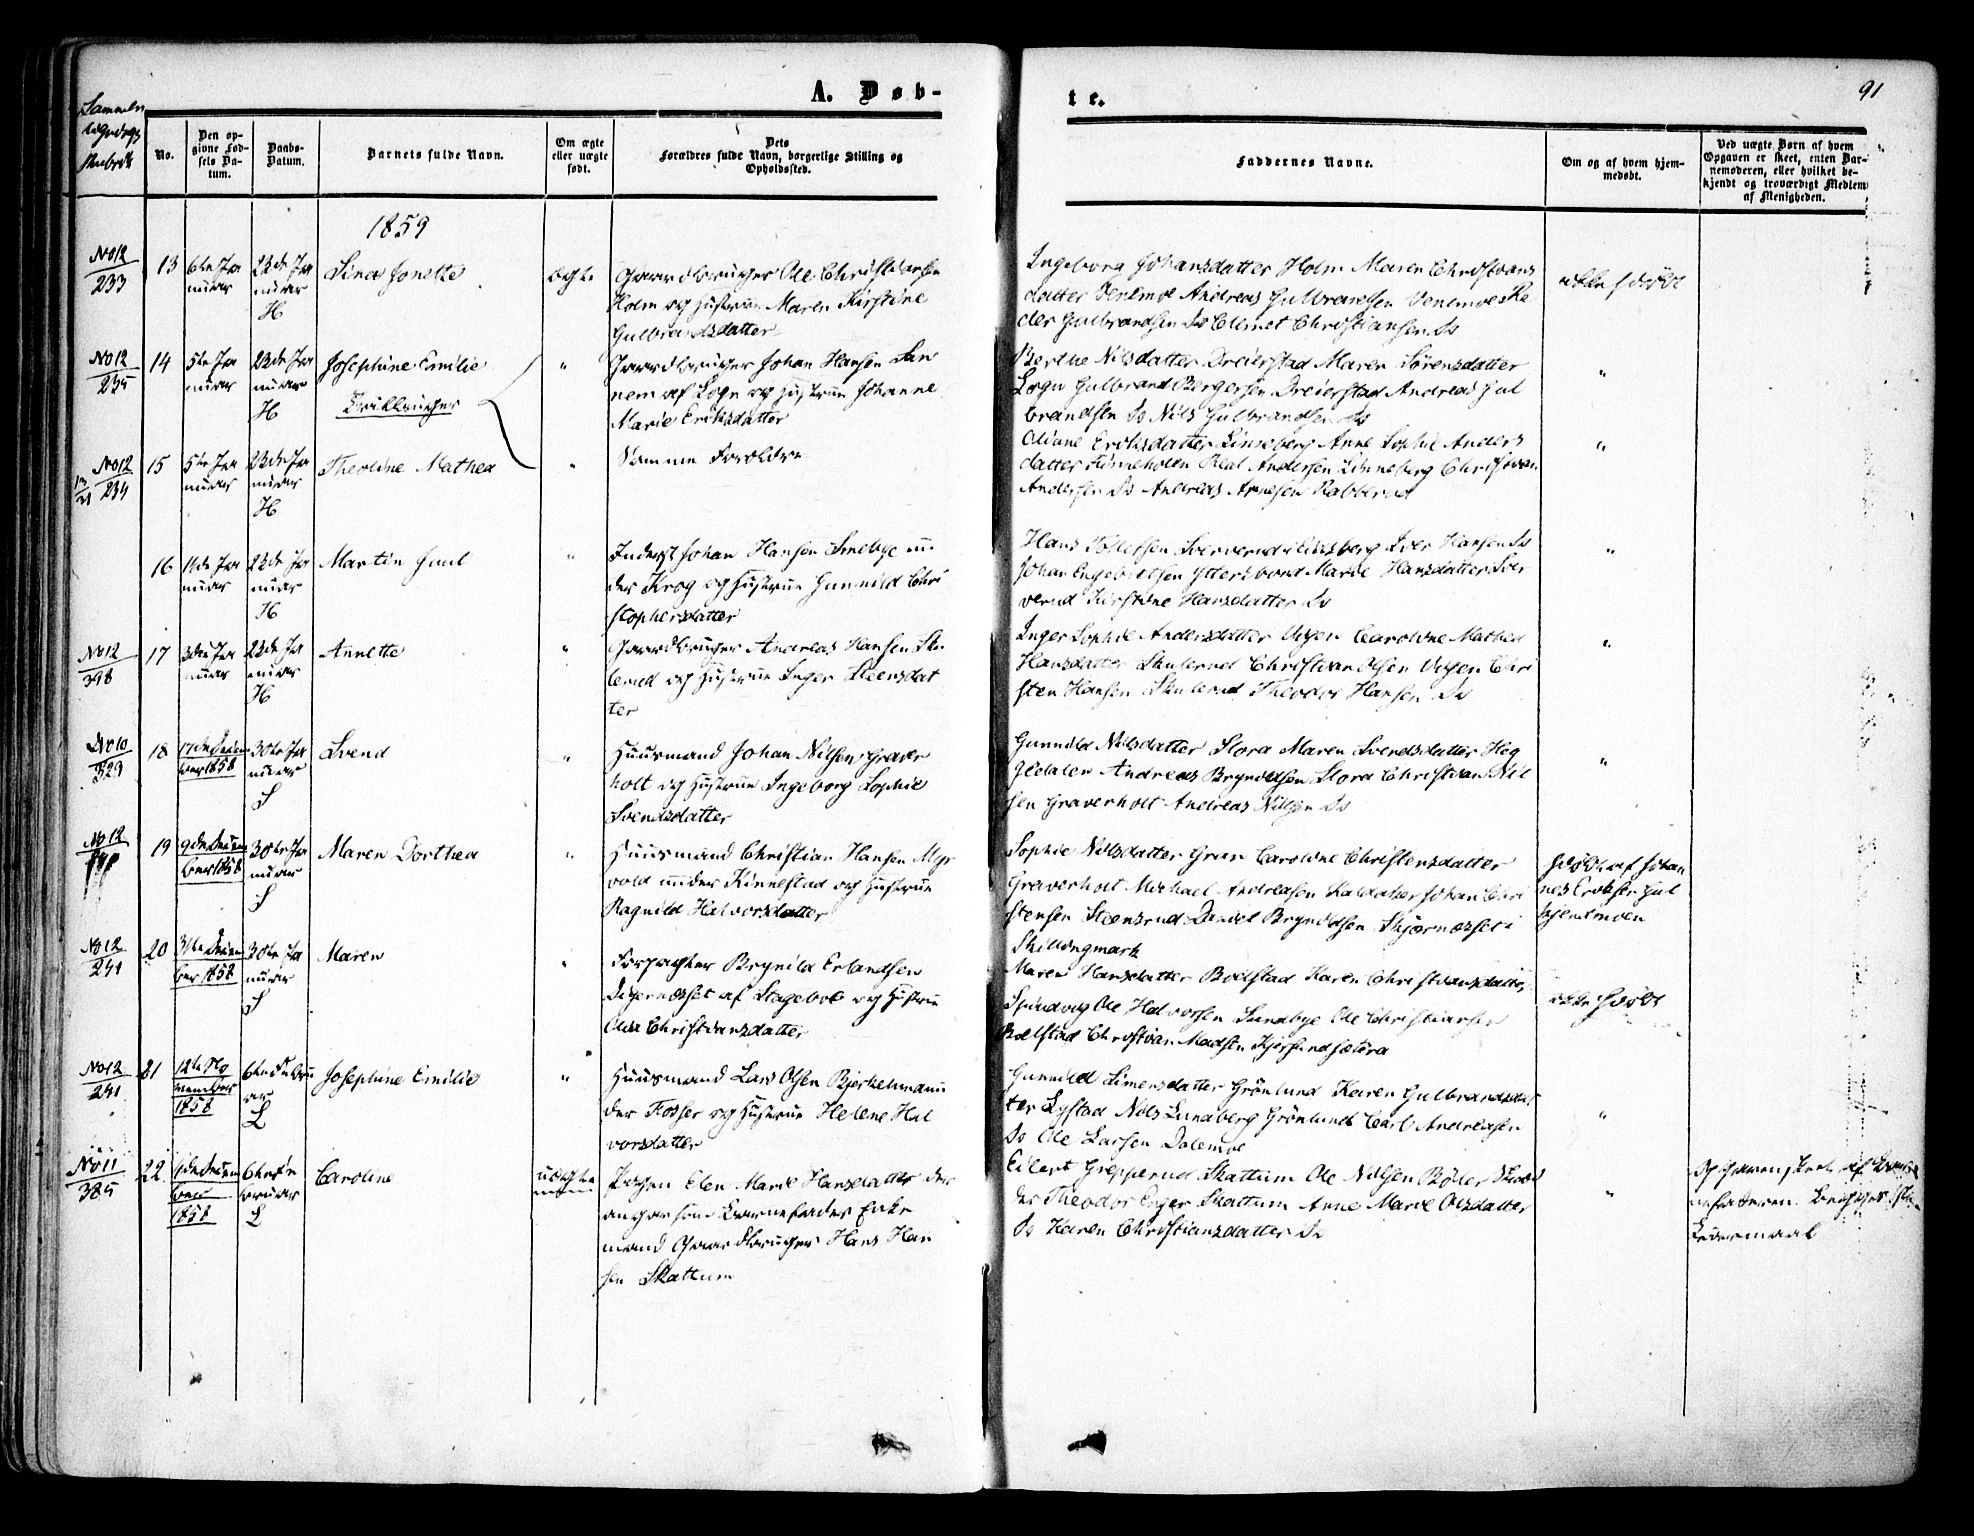 91
A. Døb-
te.
No.
Den op-
givne Fød-
sels Da-
tum.
Daabs-
Datum.
Barnets fulde Navn.
Om ægte
eller uægte
født.
Dets
Forældres fulde Navn, borgerlige Stilling og
Opholdssted.
Faddernes Navne.
Om og af hvem hjem-
medøbt.
Ved uægte Børn af hvem
Opgaven er skeet, enten Bar-
nemoderen, eller hvilket be-
kjendt og troværdigt Medlem
af Menigheden.
1859
No 12
233
13
6te Ja
nuar
23de Ja
nuar
H
Lina Jonette
ægte
Gaardbruger Ole Christiansen
Holm og Hustrue Maren Kirstine
Gulbrandsdatter
Ingeborg Johansdatter Holm Maren Christians
datter Venemoe Andreas Gulbrandsen Venemoe Pe
der Gulbrandsen Do Clemet Christiansen Do
ikke hjdøbt
No 12
235
14
5te Ja
nuar
23de Ja
nuar
H
Josephine Emilie
Trillinger
"
Gaardbruger Johan Hansen
nem af Sogn og Hustrue Johanne
Marie Eriksdatter
Berthe Nilsdatter Dreierstad Maren Sørensdatter
Sogn Gulbrand Bergersen Dreierstad Andreas Gul
brandsen Do Nils Gulbrandsen Do
"
No 12
234
15
5te Ja
nuar
23de Ja
nuar
H
Theoline Mathea
"
Samme Forældre
Oliane Eriksdatter Linneberg Anne Sophie Anders
datter Andersen Linneberg Christian
Andersen Do Andreas Arnesen Rabberud
"
16
11de Ja
nuar
23de Ja
nuar
H
Martin Juul
"
Inderst Johan Hansen Smebye un
der Krog og Hustrue Gunnild Chri
stophersdatter
Hans Iver Hansen Do
Johan Engebretsen Yttersbond Marie Hansdatter Iver
verud Kirstine Hansdatter Do
"
No 12
398
17
3die Ja
nuar
23de Ja
nuar
H
Annette
"
Gaardbruger Andreas Hansen Sku
lerud og Hustrue Inger Steensdat
ter
Inger Sophie Andersdatter Vigen Caroline Mathea
Hansdatter Skulerud Christian Olsen Vigen Chri
sten Hansen Skulerud Theodor Hansen Do
"
No 10
329
18
17de Decem
ber 1858
30te Ja
nuar
S
Svend
"
Huusmand Johan Nilsen Graver
holt og Hustrue Ingeborg Sophie
Svendsdatter
Gunnild Nilsdatter Slora Maren Svendsdatter Heg
gedalen Andreas Brynildsen Slora Christian Nil
sen Graverholt Andreas Nilsen Do
"
No 12
19
9de Decem
ber 1858
30te Ja
nuar
S
Maren Dorthea
"
Huusmand Christian Hansen Myr
vold under Kinnestad og Hustrue
Ragnild Halvorsdatter
Sophie Nilsdatter Gran Caroline Christensdatter
Graverholt Michael Andreasen Kaldaker Johan Chri
stensen Steensrud Daniel Brynildsen Skjærnæset i
Skillingmark
hjdøbt af Johan
nes Eriksen Gul
hjendmoen
No 12
241
20
31te Decem
ber 1858
30te Ja
nuar
S
Maren
"
Forpagter Brynild Erlandsen
Digernæsset af Stagebøl og Hustrue
Olea Christiansdatter
Maren Hansdatter Bodstad Karen Christiansdatter
Spindvig Ole Halvorsen Sundbye Ole Christiansen
Bolstad Christian Madsen Kjersundsætera
ikke hjdøbt
No 12
241
21
12te No
vember
1858
6te Febru
ar
L
Josephine Emilie
"
Huusmand Lars Olsen Bjerkelund un
der Fosser og Hustrue Helene Hal
vorsdatter
Gunnild Simensdatter Grønlund Karen Gulbrandsdat
ter Lystad Nils Lundberg Grønlund Carl Andreasen
Do Ole Larsen Dalemoe
"
No 11
385
22
1de Decem
ber
1858
6te Fe
bruar
L
Caroline
uægte
Pigen Elen Marie Hansdatter der
angav som Barnefader Enke
mand Gaardbruger Hans Han
sen Skattum
Eilert Grepperud Skattum Ole Nilsen Bøler
der Theodor Enger Skattum Anne Marie Olsdatter
Do Karen Christiansdatter Do
"
Opgaven skeet af Barne